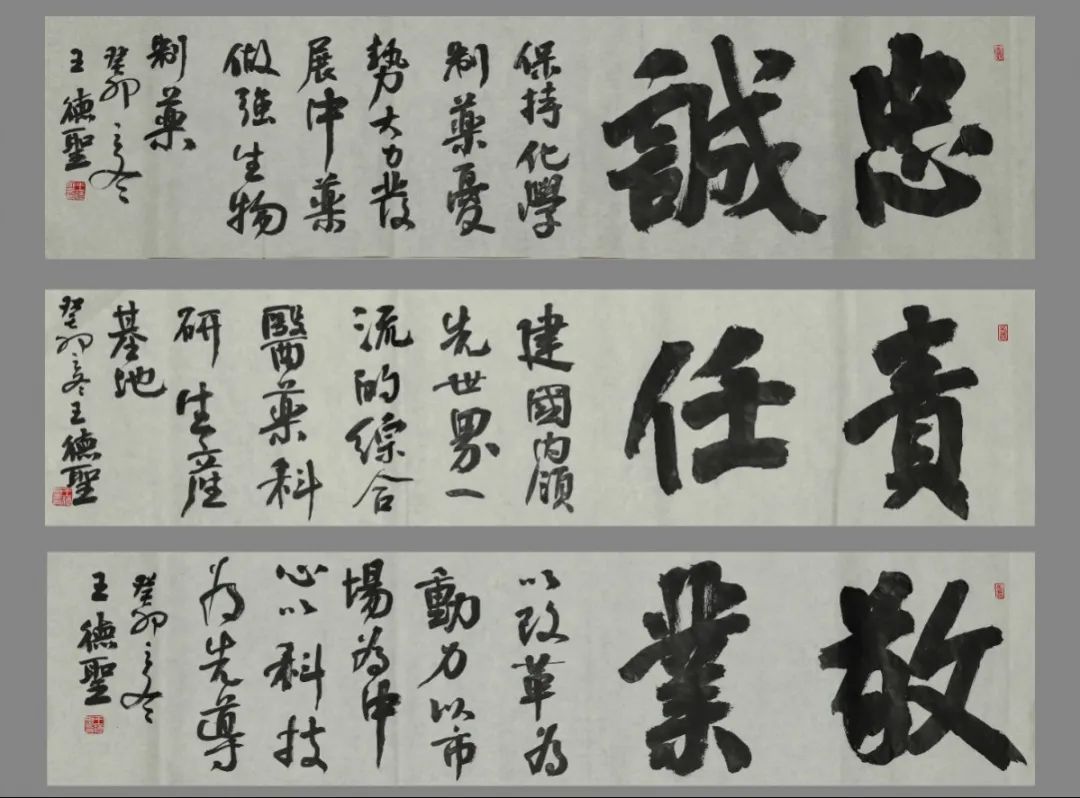 忠誠
保持化學
制藥憂
勢大力發
展中藥
做強生物
制藥
癸卯之冬
王德聖
責任
建國内領
先世界一
流的綜合
醫藥科
研生產
基地
癸卯之冬王德聖
敬業
以改革為
動力以市
場為中
心以科技
為先導
癸卯之冬
王德聖